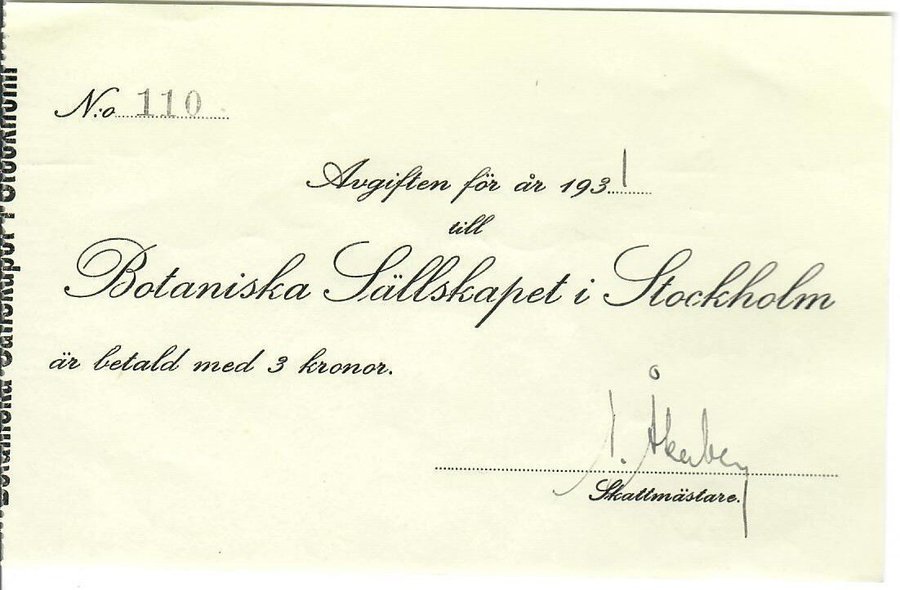 N:o 110
Avgiften för år 1931
till
Botaniska Sällskapet i Stockholm
är betald med 3 kronor.
Skattmästare.
Botaniska Sällskapet i Stockholm